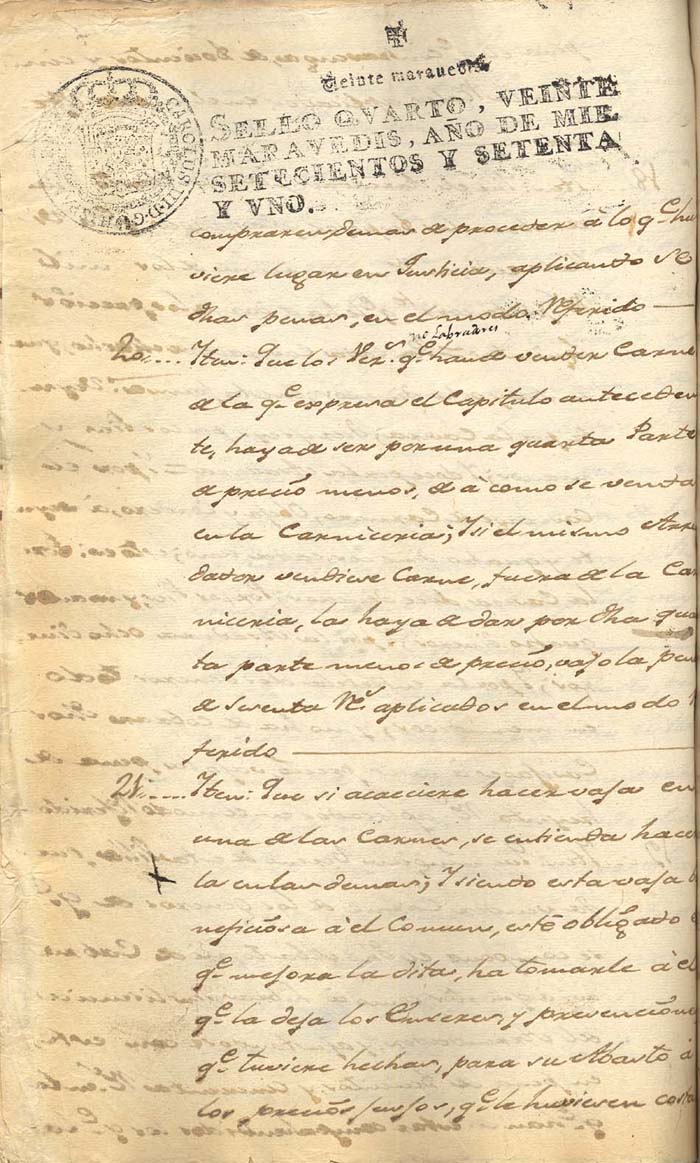 Veinte maravedis
SELLO QVARTO, VEINTE
MARAVEDIS, AÑO DE MIL
SETECIENTOS Y SETENTA
Y VNO.
CAROLUS III D. G. HISP
compraren demas de proceder à lo q.e hu
viere lugar en Justicia, aplicando se
dhas penas, en el modo Referido
no Labradores
20.... Iten: Que los Vez.s q.e han de vender Carne
de la q.e expresa el Capitulo anteceden
te, haya de ser por una quarta Parte
de precio menos, de à como se venda
en la Carniceria; Y si el mismo Arren
dador vendiese Carne, fuera de la Car
niceria, la haya de dar por dha quar
ta parte menos de precio, vajo la pena
de sesenta R.s aplicados en el modo re
ferido
21.... Iten: Que si acaeciere hacer vaja en
una de las Carnes, se entienda hacer
la en las demas; Y siendo esta vaja be
neficiosa à el Comun, esté oblig.ado el
q.e mejora la dita, ha tomarle à el
q.e la deja los Enseres, y prevencione
q.e tuviere hechas, para su Abasto à
los precios justos, q.e le huviesen costa